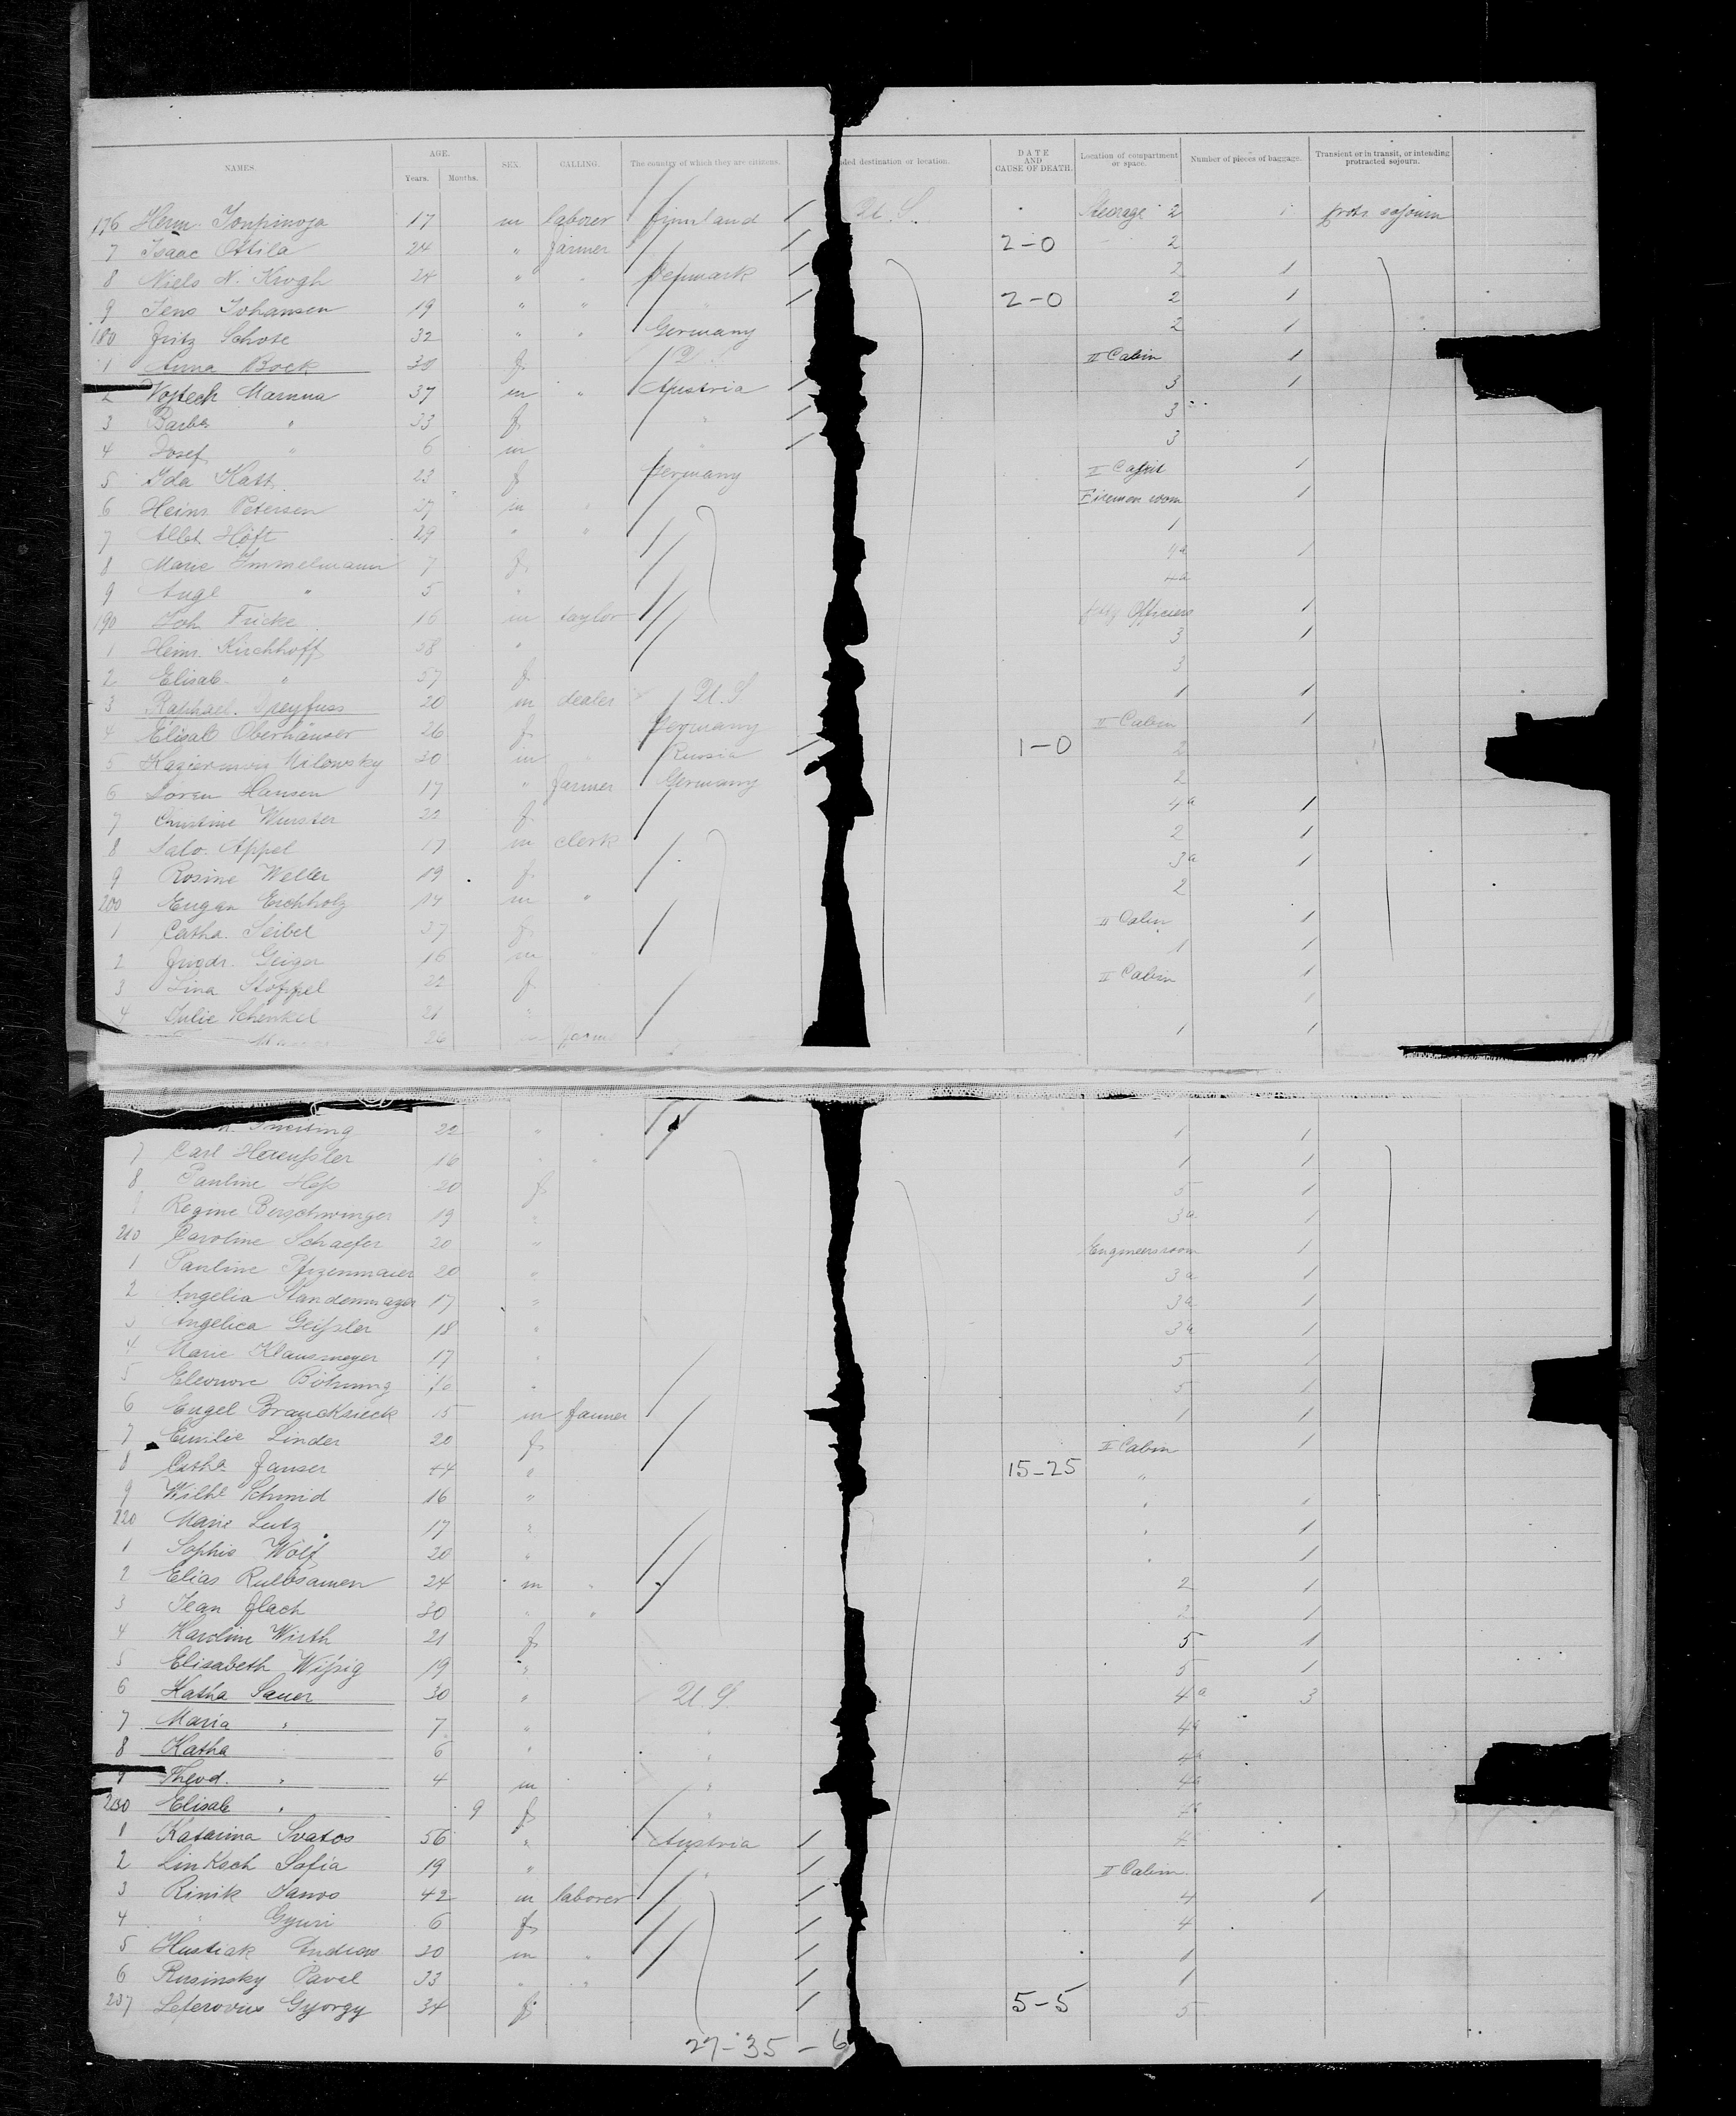 NAMES. AGE. Years. Months. SEX. CALLING. The country of which they are citizens. ded destination or location. DATE AND CAUSE OF DEATH. Location of compartment or space. Number of pieces of baggage. Transient or in transit, or intending protracted sojourn.
176 Herm. 17 m laborer Finnland / U. S. Steerage 2 1 protr. sojourn
7 Isaac Ottila 24 " farmer / 2-0 2
8 Niels N. Krogh 24 " " Denmark / 2 1
9 Jens Johansen 19 " " " / 2-0 2 1
180 Fritz Schote 32 " " Germany 2 1
1 Anna Bock 30 f U. S. II Cabin 1
2 Vojtech Mamma 37 m " Austria / 3 1
3 Barba " 33 f " / 3
4 Josef " 6 m " / 3
5 Ida Katt 23 f Germany II Cabin 1
6 Heinr Petersen 37 m " Firemen room 1
7 Albt. Höft 29 " " 1
8 Marie Immelmann 7 f 4a 1
9 Ange " 5 " 4a
190 Joh Fricke 16 m taylor petty Officiers 1
1 Heinr. Kirchhoff 58 " 3 1
2 Elisab " 57 f 3
3 Raphael Dreyfuss 20 m dealer U. S 1 1
4 Elisab Oberhäuser 26 f Germany II Cabin 1
5 Malowsky 30 m Russia / 1-0 2
6 Soren Hansen 17 " farmer Germany 2
7 Christine Wurster 22 f 4a 1
8 Salo. Appel 17 m clerk 2 1
9 Rosine Weller 19 f 3a 1
200 Eugen Eichholz 14 m " 2
1 Catha. Seibel 37 f II Cabin 1
2 Geiger 16 m 1 1
3 Lina Stoppel 22 f II Cabin 1
4 Julie Schenkel 21 " 1
26 farm 1 1
22 " " 1 1
7 Carl Heressler 16 " " 1 1
8 Pauline Hess 20 f 5 1
Regine Berschwinger 19 " 3a 1
210 Caroline Schaefer 20 " Engineersroom 1
1 Pauline Pfizenmaier 20 " 3a 1
2 Angelia Standenmayer 17 " 3a 1
3 Angelica Geissler 18 " 3a 1
4 Marie Klausmeyer 17 " 5 1
5 Eleonore Böhning 16 " 5 1
6 Engel Brancksieck 15 m farmer 1 1
7 Emilie Linder 20 f II Cabin 1
8 Catha. Janser 44 " 15-25 "
9 Wilhe Schmid 16 " " 1
220 Marie Lutz 17 " " 1
1 Sophie Wolf 20 " " 1
2 Elias Rulbsamen 24 m " 2 1
3 Jean Flach 30 " " 2 1
4 Karoline Wirth 21 f 5 1
5 Elisabeth Wissig 19 " 5 1
6 Katha Sauer 30 " U. S. 4a 3
7 Maria " 7 " " 4a
8 Katha " 6 " " 4a
9 Theod. " 4 m " 4a
230 Elisab " 9 f " 4a
1 Katarina Svatos 56 " Austria / 4
2 Linksch Sofia 19 " " / II Cabin
3 Rinik Janos 42 m laborer / 4 1
4 " Gyuri 6 f / 4
5 Hustiak 20 m " / 1
6 Rusinsky Pavel 33 " " / 1
237 Leferovics Gyorgy 34 f / 5-5 5
27-35-6